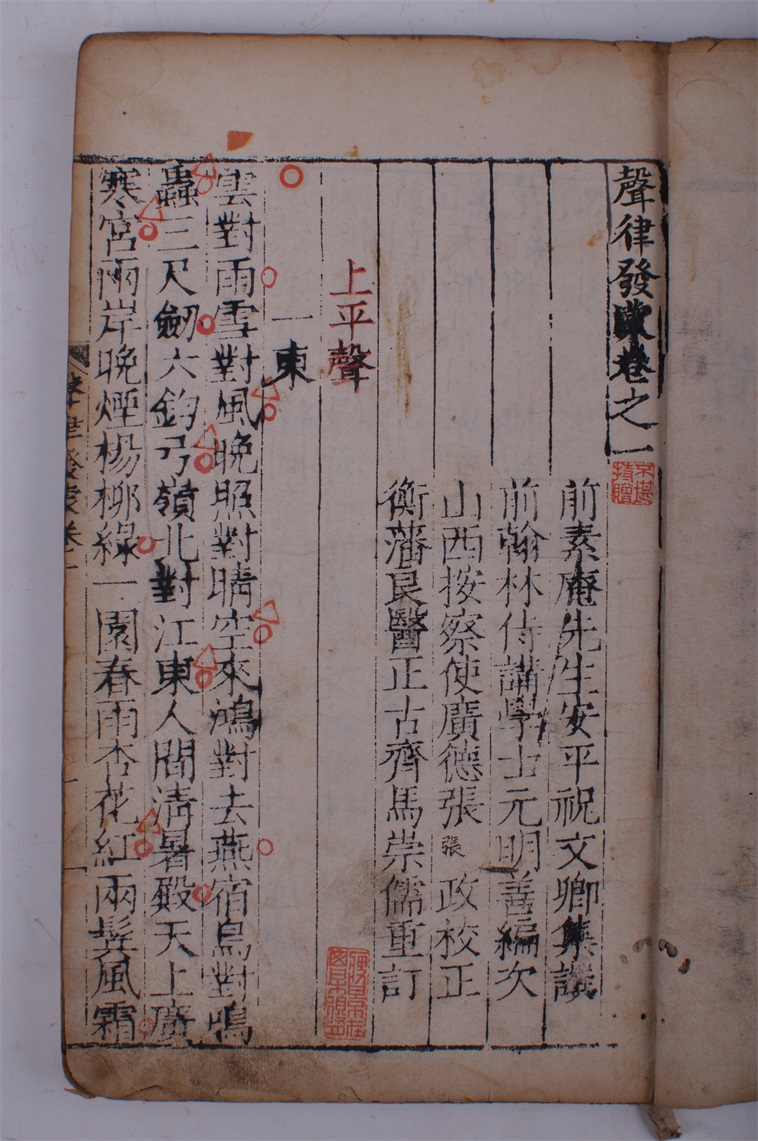 聲律發蒙卷之一
前素庵先生安平祝文卿集譔
前翰林侍講學士元明善編次
山西按察使廣德張 張 政校正
衡藩良醫正古齊馬崇儒重訂
上平聲
一東
雲對雨雪對風晚照對晴空來鴻對去燕宿鳥對鳴
蟲三尺劒六鈞弓嶺北對江東人間清暑殿天上廣
寒宮兩岸晚煙楊柳綠一園春雨杏花紅兩鬂風霜